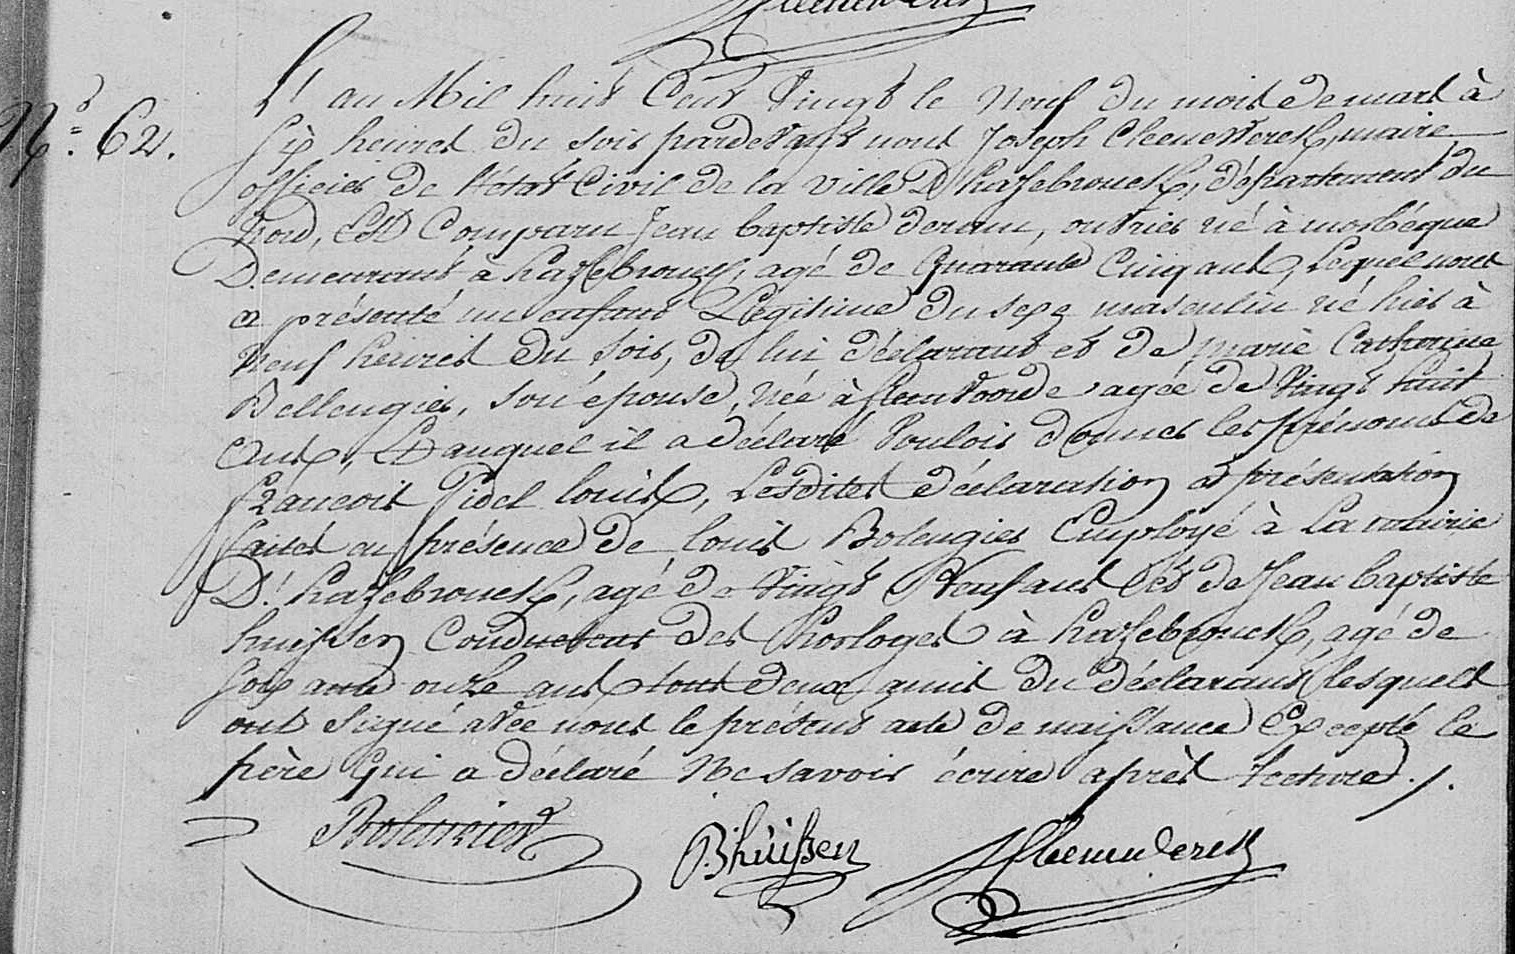 N.º 62.
L'an Mil huit Cent Vingt le Neuf du mois de mars à
six heures du soir pardevant nous Joseph Cleenewerck, maire
officier de l'état Civil de la ville D'hazebrouck, département du
Nord, Est Comparu Jean baptiste deram, ouvrier né à morbecque
Demeurant à hazebrouck, agé de Quarante Cinq ans, Lequel nous
a présenté un enfant Légitime du sexe masculin né hier à
neuf heures du soir, de lui déclarant et de marie Catherine
Bellengier, son épouse, née à steenvoorde agée de Vingt huit
ans, Et auquel il a déclaré Vouloir donner les prénoms de
françois fidel louis, Lesdites déclaration et présentation
faites en présence de louis Bolengier Employé à La mairie
D'hazebrouck, agé de Vingt Neuf ans Et de Jean baptiste
huissen Conducteur des Horloges à hazebrouck, agé de
soixante onze ans tous deux amis du déclarant, lesquels
ont signé avec nous le présent acte de naissance Excepté le
père Qui a déclaré Ne savoir écrire après lecture ./.
Bolengier B. huissen J Cleenewerck